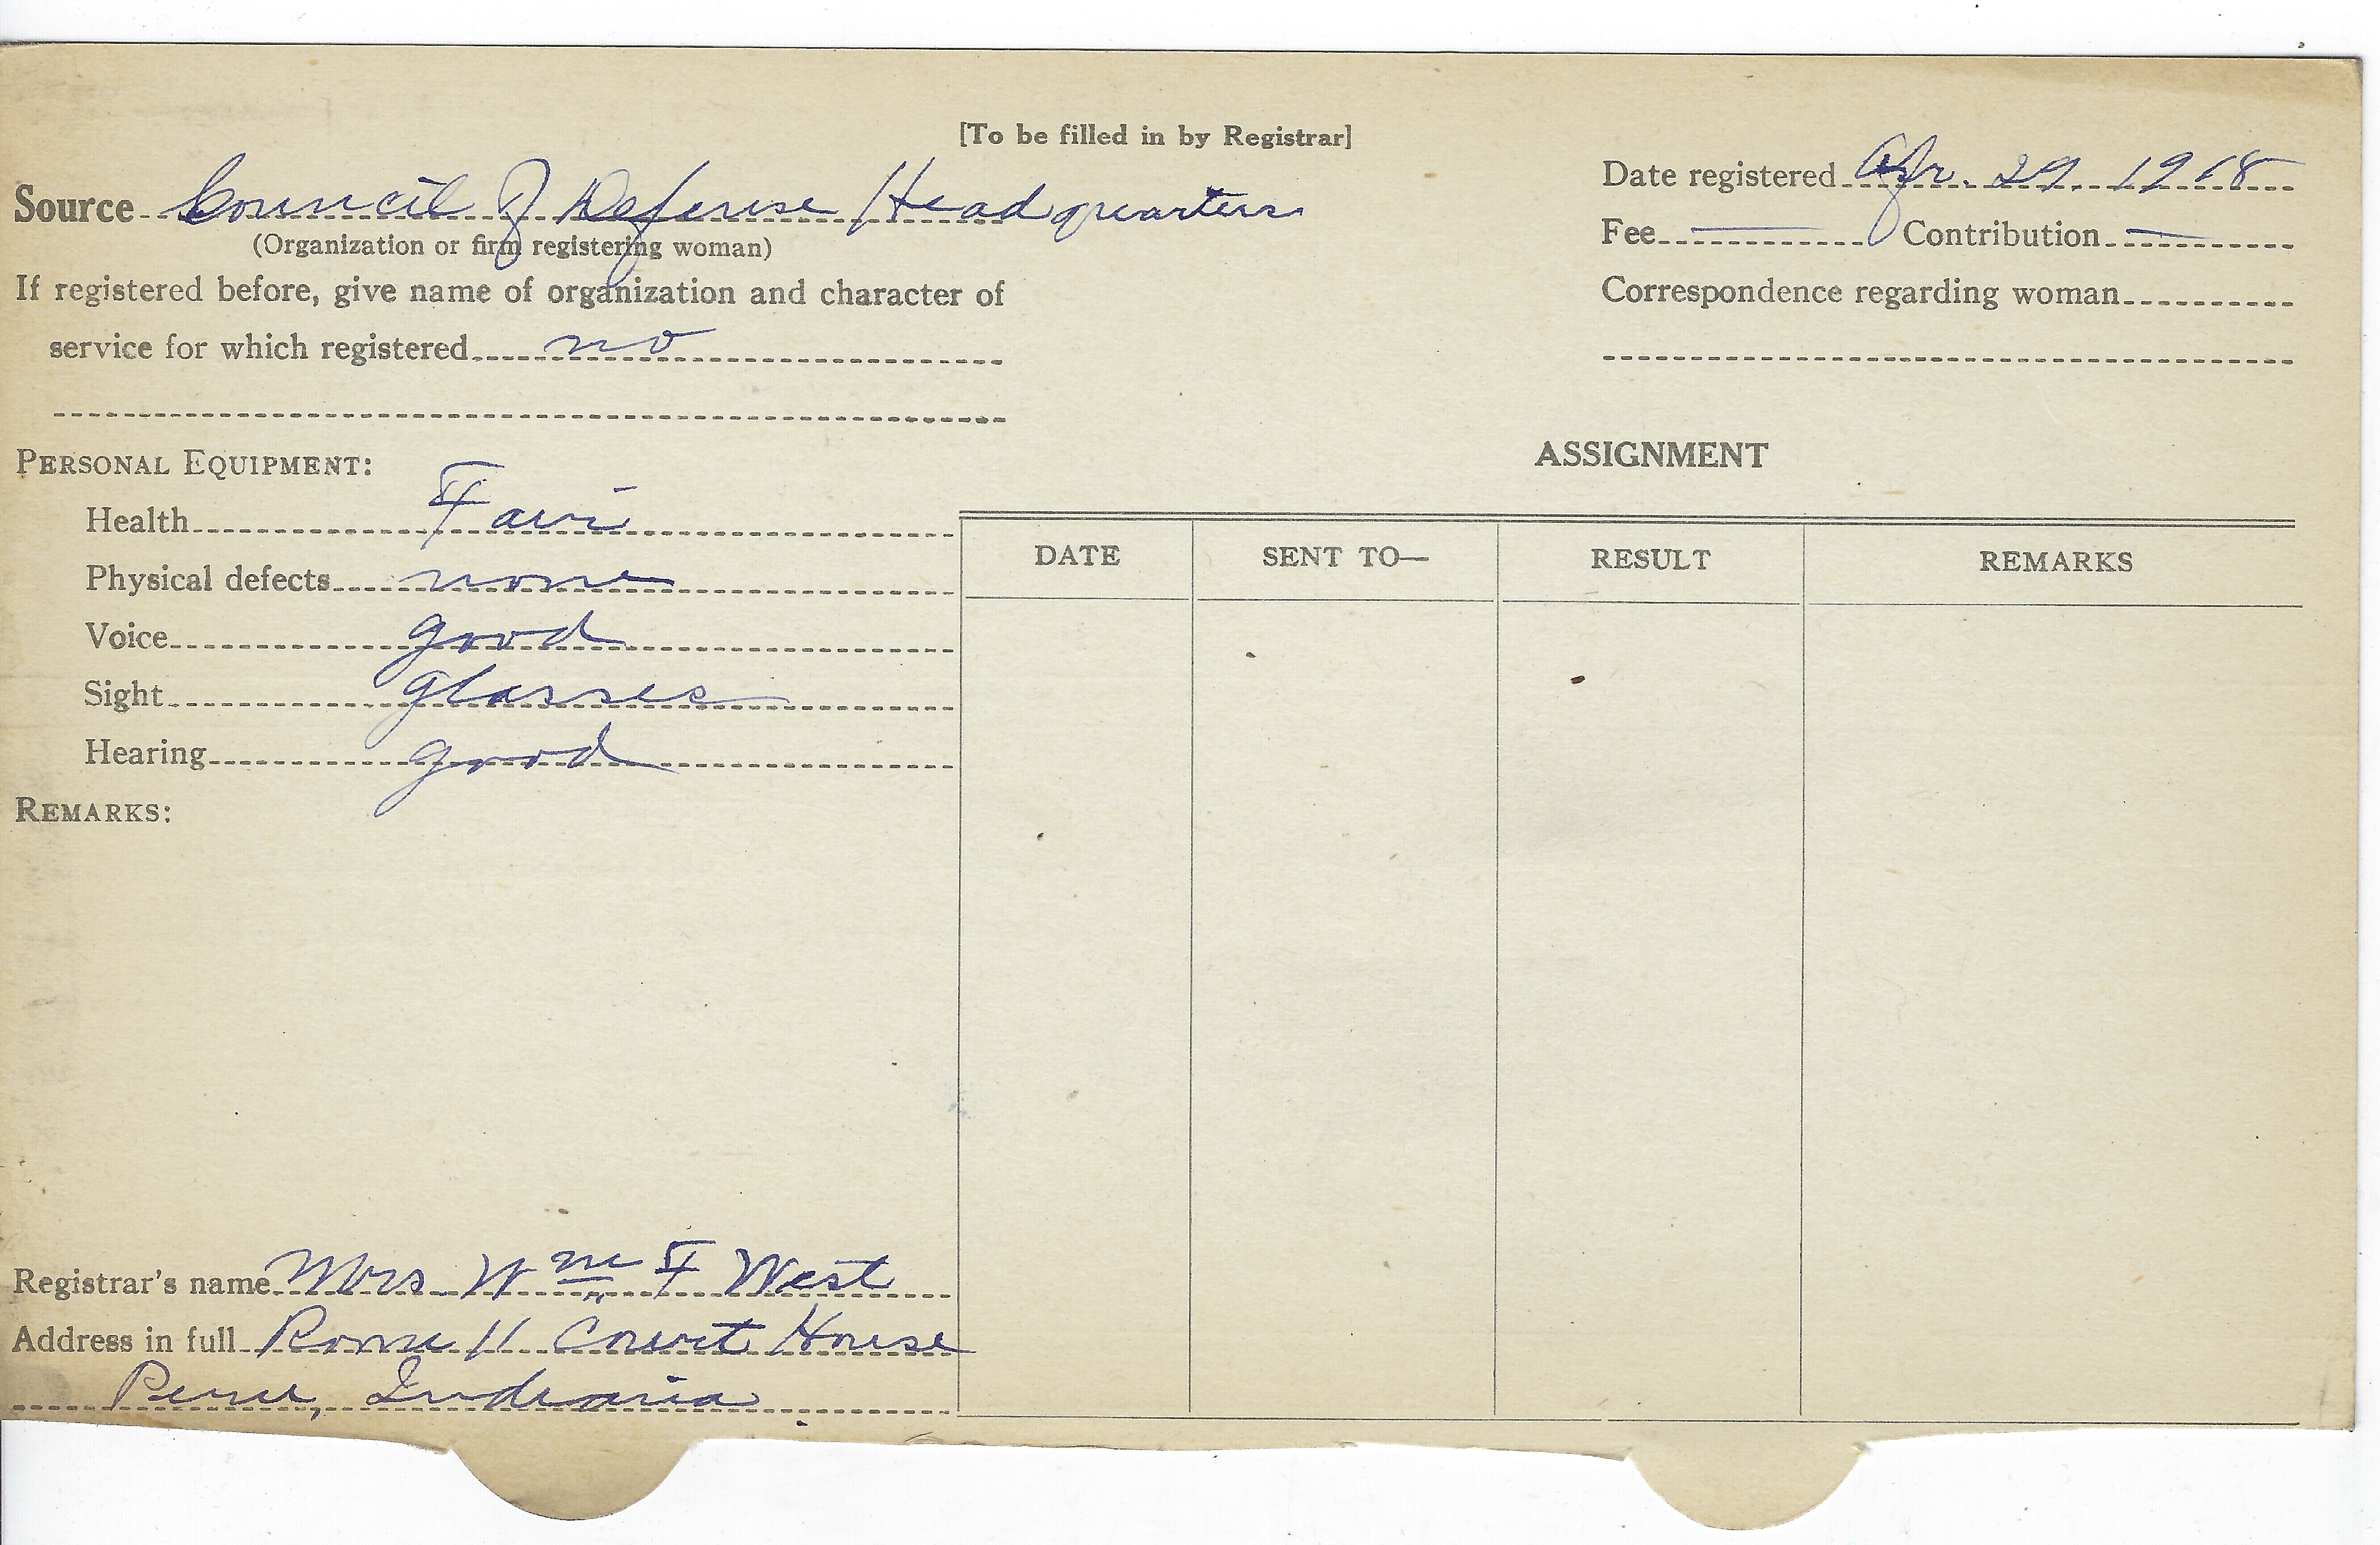 [To be filled in by Registrar]
Source Council of Defense Headquarters
(Organization or firm registering woman)
If registered before, give name of organization and character of
service for which registered no
Date registered Apr. 29. 1918
Fee — Contribution —
Correspondence regarding woman
PERSONAL EQUIPMENT:
Health Fair
Physical defects none
Voice good
Sight glasses
Hearing good
REMARKS:
ASSIGNMENT
DATE SENT TO— RESULT REMARKS
Registrar's name Mrs Wm F West
Address in full Room 11 Court House
Peru, Indiana